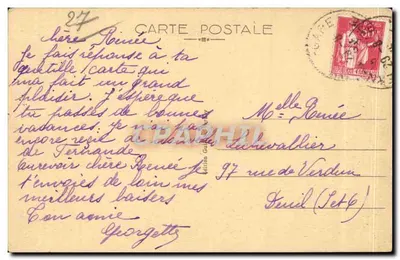 27
CARTE POSTALE
chère Renée
Je fais réponse à ta
gentille carte qui
m'a fait un grand
plaisir. J'espère que
tu passes de bonnes
vacances. Je n'ai pas
encore reçu de
de Fernande
aurevoir chère Renée je
t'envoies de loin mes
meilleurs baisers
Ton amie
Georgette
Melle Renée
Levavallier
97 rue de Verdun
Deuil (S et O)
GARE